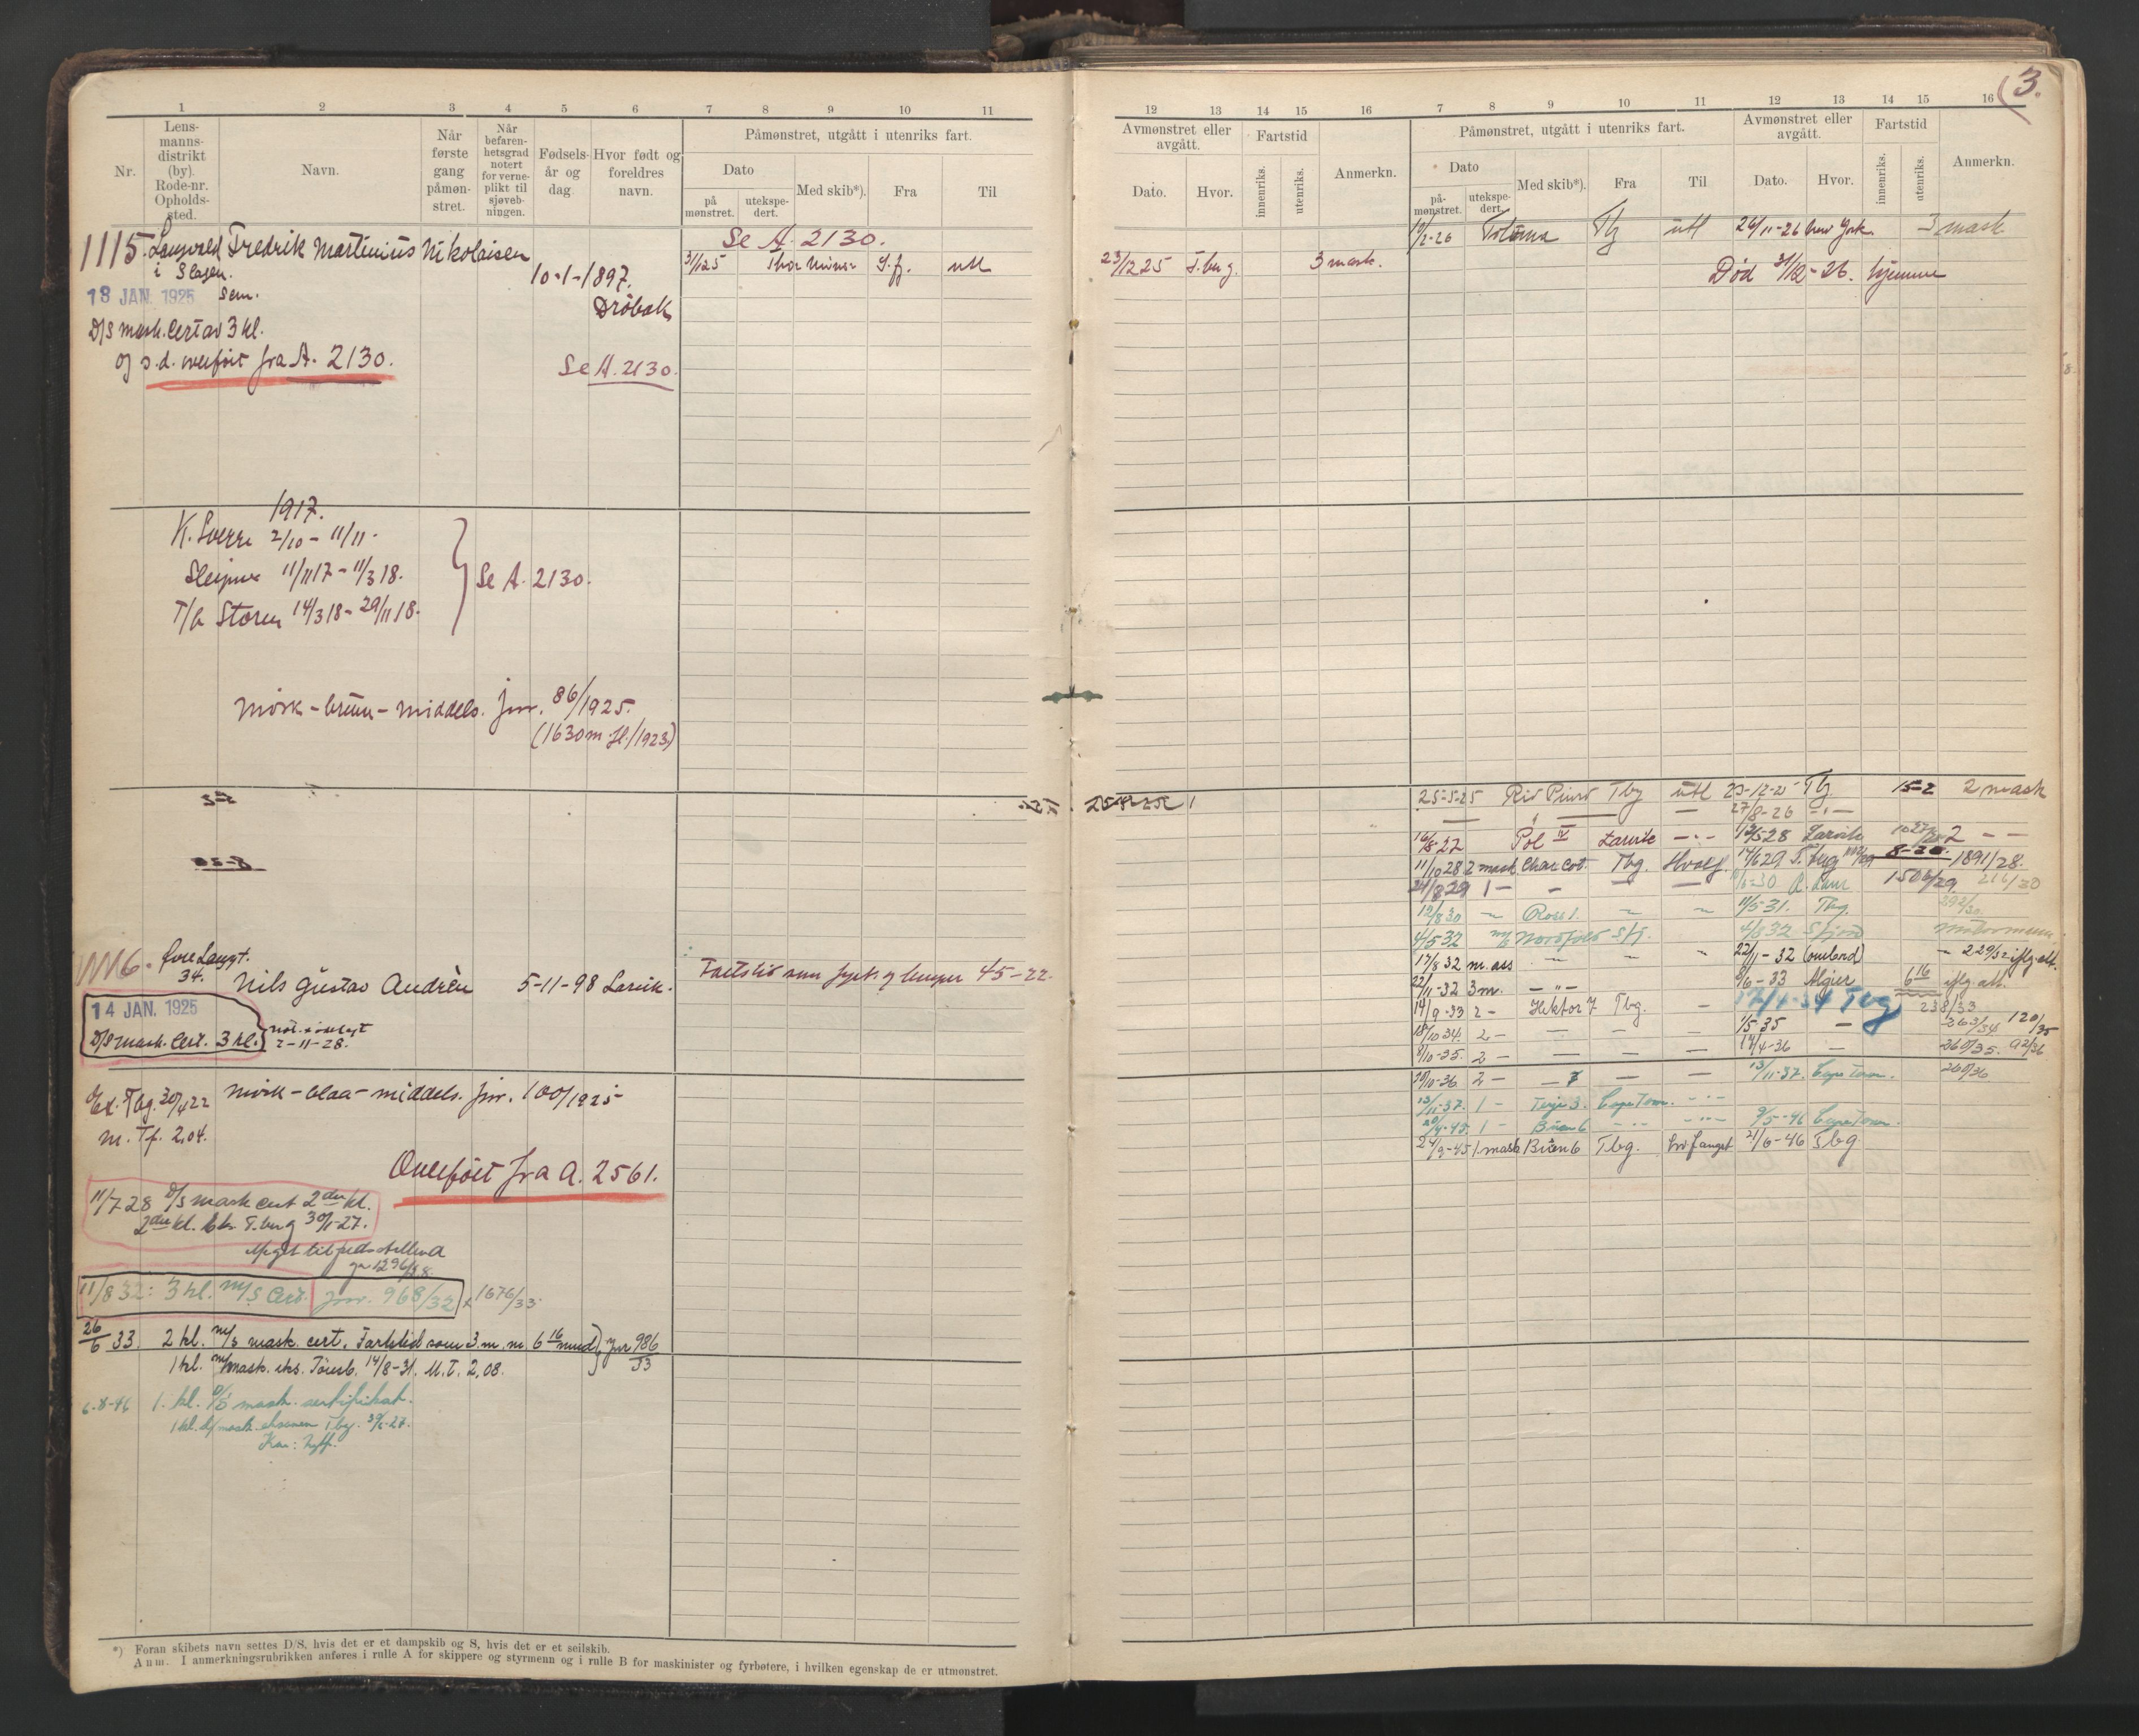 3.
1 2 3 4 5 6 7 8 9 10 11
Nr.
Lens-
manns-
distrikt
(by).
Rode-nr.
Opholds-
sted.
Navn.
Når
første
gang
påmøn-
stret.
Når
befaren-
hetsgrad
notert
for verne-
plikt til
sjøveb-
ningen.
Fødsels-
år og
dag.
Hvor født og
foreldres
navn.
Påmønstret, utgått i utenriks fart.
Dato
på
mønstret.
utekspe-
dert.
Med skib*).
Fra
Til
1115. Fredrik Martinius Nikolaisen
i Slagen.
Sem.
13 JAN. 1925
10-1-1897.
Drøbak
Se A. 2130.
D/S mask. Cert av 3 kl.
og s.d. overført fra A. 2130.
Se A. 2130.
31/1 25 S.fj. utl
1917.
K. Sverre 2/10 - 11/11.
Sleipner 11/11 17 - 11/3 18.
T/b Storm 14/3 18 - 29/11 18.
Se A. 2130.
Mørk - brun - middels. jnr. 86/1925.
(1630 m. fl./1923)
1116.
34.
Nils Gustav Andrèn 5-11-98 Larvik.
Fartstid som fyrb. og lemper 45-22.
14 JAN. 1925
D/S mask. Cert. 3 kl.
2-11-28.
Ex. Tbg. 30/4 22
m. Tf. 2,04.
Mørk - blaa - middels. jnr. 100/1925
Overført fra A. 2561.
11/7 28 D/S mask cert 2den kl.
2den kl. Eks. T.berg 30/1-27.
Meget tilfredsstillend
jn 1296/28.
11/8 32: 3 kl. m/s Cert. jnr. 968/32 & 1676/33
26/6 33 2 kl. m/s mask. cert. Fartstid som 3. m. m. 6 16 mnd jnr 986/33
1 kl. m/mask. eks. Tønsb. 14/8-31. M.T. 2,08.
6-8-46 1. kl. D/S mask. sertifikat.
1 kl. D/mask. eksamen Tbg. 30/1-27.
Kar: 2,ff.
*) Foran skibets navn settes D/S, hvis det er et dampskib og S, hvis det er et seilskib.
Anm. I anmerkningsrubrikken anføres i rulle A for skippere og styrmenn og i rulle B for maskinister og fyrbøtere, i hvilken egenskap de er utmønstret.
12 13 14 15 16 7 8 9 10 11 12 13 14 15 16
Avmønstret eller
avgått.
Dato.
Hvor.
Fartstid
innenriks.
utenriks.
Anmerkn.
Påmønstret, utgått i utenriks fart.
Dato
på-
mønstret.
utekspe-
dert.
Med skib*).
Fra
Til
Avmønstret eller
avgått.
Dato.
Hvor.
Fartstid
innenriks.
utenriks.
Anmerkn.
Tbg utl 26/11-26 New York. 3 mask
23/12 25 T.berg. 3 mask.
Død 31/12-26. hjemme
25-5-25 Tbg utl 23-12-25 Tbg. 15-2 2 mask
27/8-26
16/8-27 Pol IV Larvik 12/5 28 Larvik
11/10 28 2 mask Charcot. Tbg. Hvalf. 17/6 29 T.berg 8-20. 1891/28.
21/8 29 1 - 1506/29 216/30
12/8 30 Ross 1. 11/5-31. Tbg. 292/30
4/5 32 m/s Nordfold Sfj. 4/8 32 Sfjord motormann
17/8 32 m. ass 22/11-32 (ombord) 229/32 iflg. att.
22/11-32 3 m. 9/6-33 Alger 6 16 iflg. att.
14/9-33 2 - Hektor 7 Tbg. 17/4-34 Tbg 238/33
18/10 34. 2 - 1/5 35 263/34 120/35
8/10-35. 2 - 14/4-36 260/35. 92/36
10/10-36 2 - 7 13/11-37. Cape Town. 260/36
13/11-37. 1 - Terje 3. Cape Town.
20/9-45. 1 - Busen 6 9/5-46 Cape Town.
24/9-45 1. mask Busen 6 Tbg. hvfangst 21/6-46 Tbg